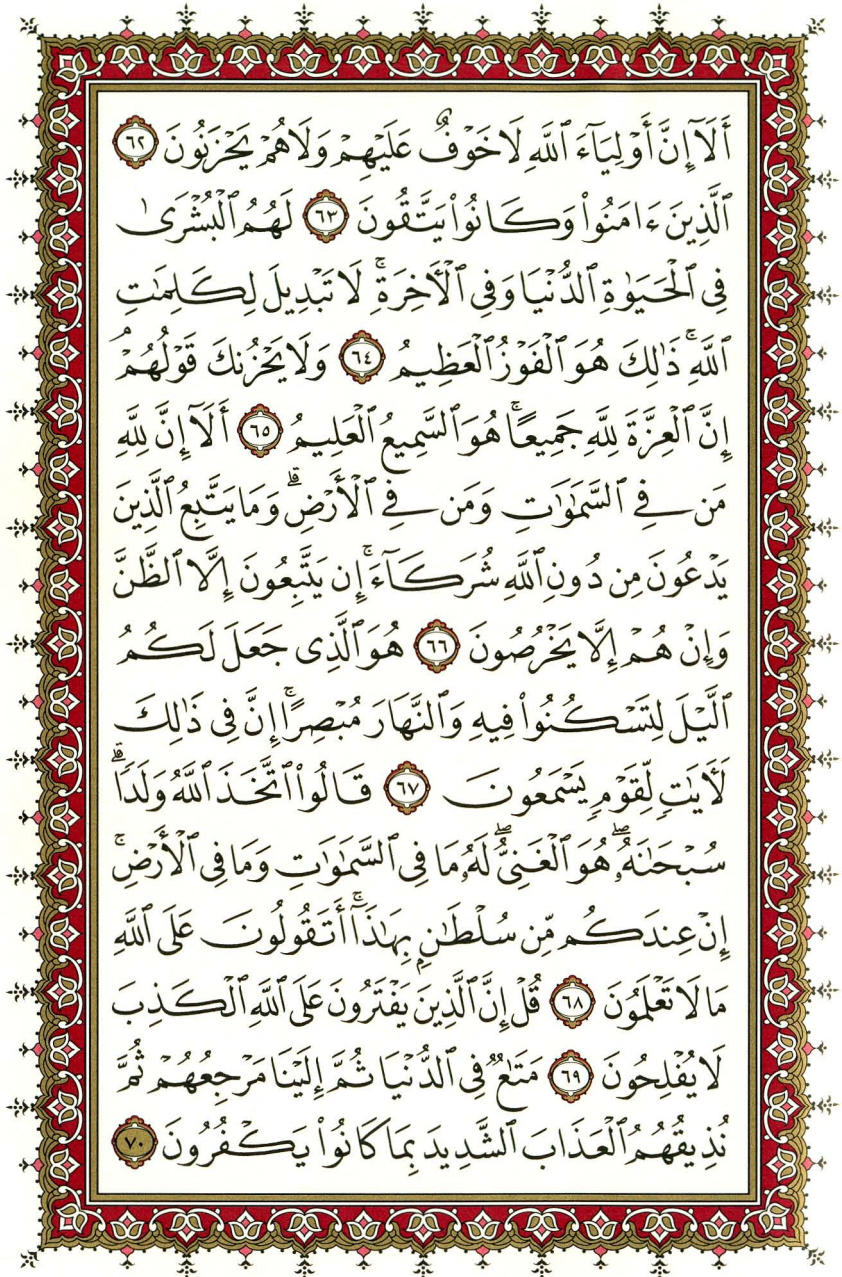 أَلَآ إِنَّ أَوْلِيَآءَ ٱللَّهِ لَا خَوْفٌ عَلَيْهِمْ وَلَا هُمْ يَحْزَنُونَ ٦٢
ٱلَّذِينَ ءَامَنُوا۟ وَكَانُوا۟ يَتَّقُونَ ٦٣ لَهُمُ ٱلْبُشْرَىٰ
فِى ٱلْحَيَوٰةِ ٱلدُّنْيَا وَفِى ٱلْءَاخِرَةِ ۚ لَا تَبْدِيلَ لِكَلِمَٰتِ
ٱللَّهِ ۚ ذَٰلِكَ هُوَ ٱلْفَوْزُ ٱلْعَظِيمُ ٦٤ وَلَا يَحْزُنكَ قَوْلُهُمْ ۘ
إِنَّ ٱلْعِزَّةَ لِلَّهِ جَمِيعًا ۚ هُوَ ٱلسَّمِيعُ ٱلْعَلِيمُ ٦٥ أَلَآ إِنَّ لِلَّهِ
مَن فِى ٱلسَّمَٰوَٰتِ وَمَن فِى ٱلْأَرْضِ ۗ وَمَا يَتَّبِعُ ٱلَّذِينَ
يَدْعُونَ مِن دُونِ ٱللَّهِ شُرَكَآءَ ۚ إِن يَتَّبِعُونَ إِلَّا ٱلظَّنَّ
وَإِنْ هُمْ إِلَّا يَخْرُصُونَ ٦٦ هُوَ ٱلَّذِى جَعَلَ لَكُمُ
ٱلَّيْلَ لِتَسْكُنُوا۟ فِيهِ وَٱلنَّهَارَ مُبْصِرًا ۚ إِنَّ فِى ذَٰلِكَ
لَءَايَٰتٍ لِّقَوْمٍ يَسْمَعُونَ ٦٧ قَالُوا۟ ٱتَّخَذَ ٱللَّهُ وَلَدًا ۗ
سُبْحَٰنَهُۥ ۖ هُوَ ٱلْغَنِىُّ ۖ لَهُۥ مَا فِى ٱلسَّمَٰوَٰتِ وَمَا فِى ٱلْأَرْضِ ۚ
إِنْ عِندَكُم مِّن سُلْطَٰنٍۭ بِهَٰذَآ ۚ أَتَقُولُونَ عَلَى ٱللَّهِ
مَا لَا تَعْلَمُونَ ٦٨ قُلْ إِنَّ ٱلَّذِينَ يَفْتَرُونَ عَلَى ٱللَّهِ ٱلْكَذِبَ
لَا يُفْلِحُونَ ٦٩ مَتَٰعٌ فِى ٱلدُّنْيَا ثُمَّ إِلَيْنَا مَرْجِعُهُمْ ثُمَّ
نُذِيقُهُمُ ٱلْعَذَابَ ٱلشَّدِيدَ بِمَا كَانُوا۟ يَكْفُرُونَ ٧٠